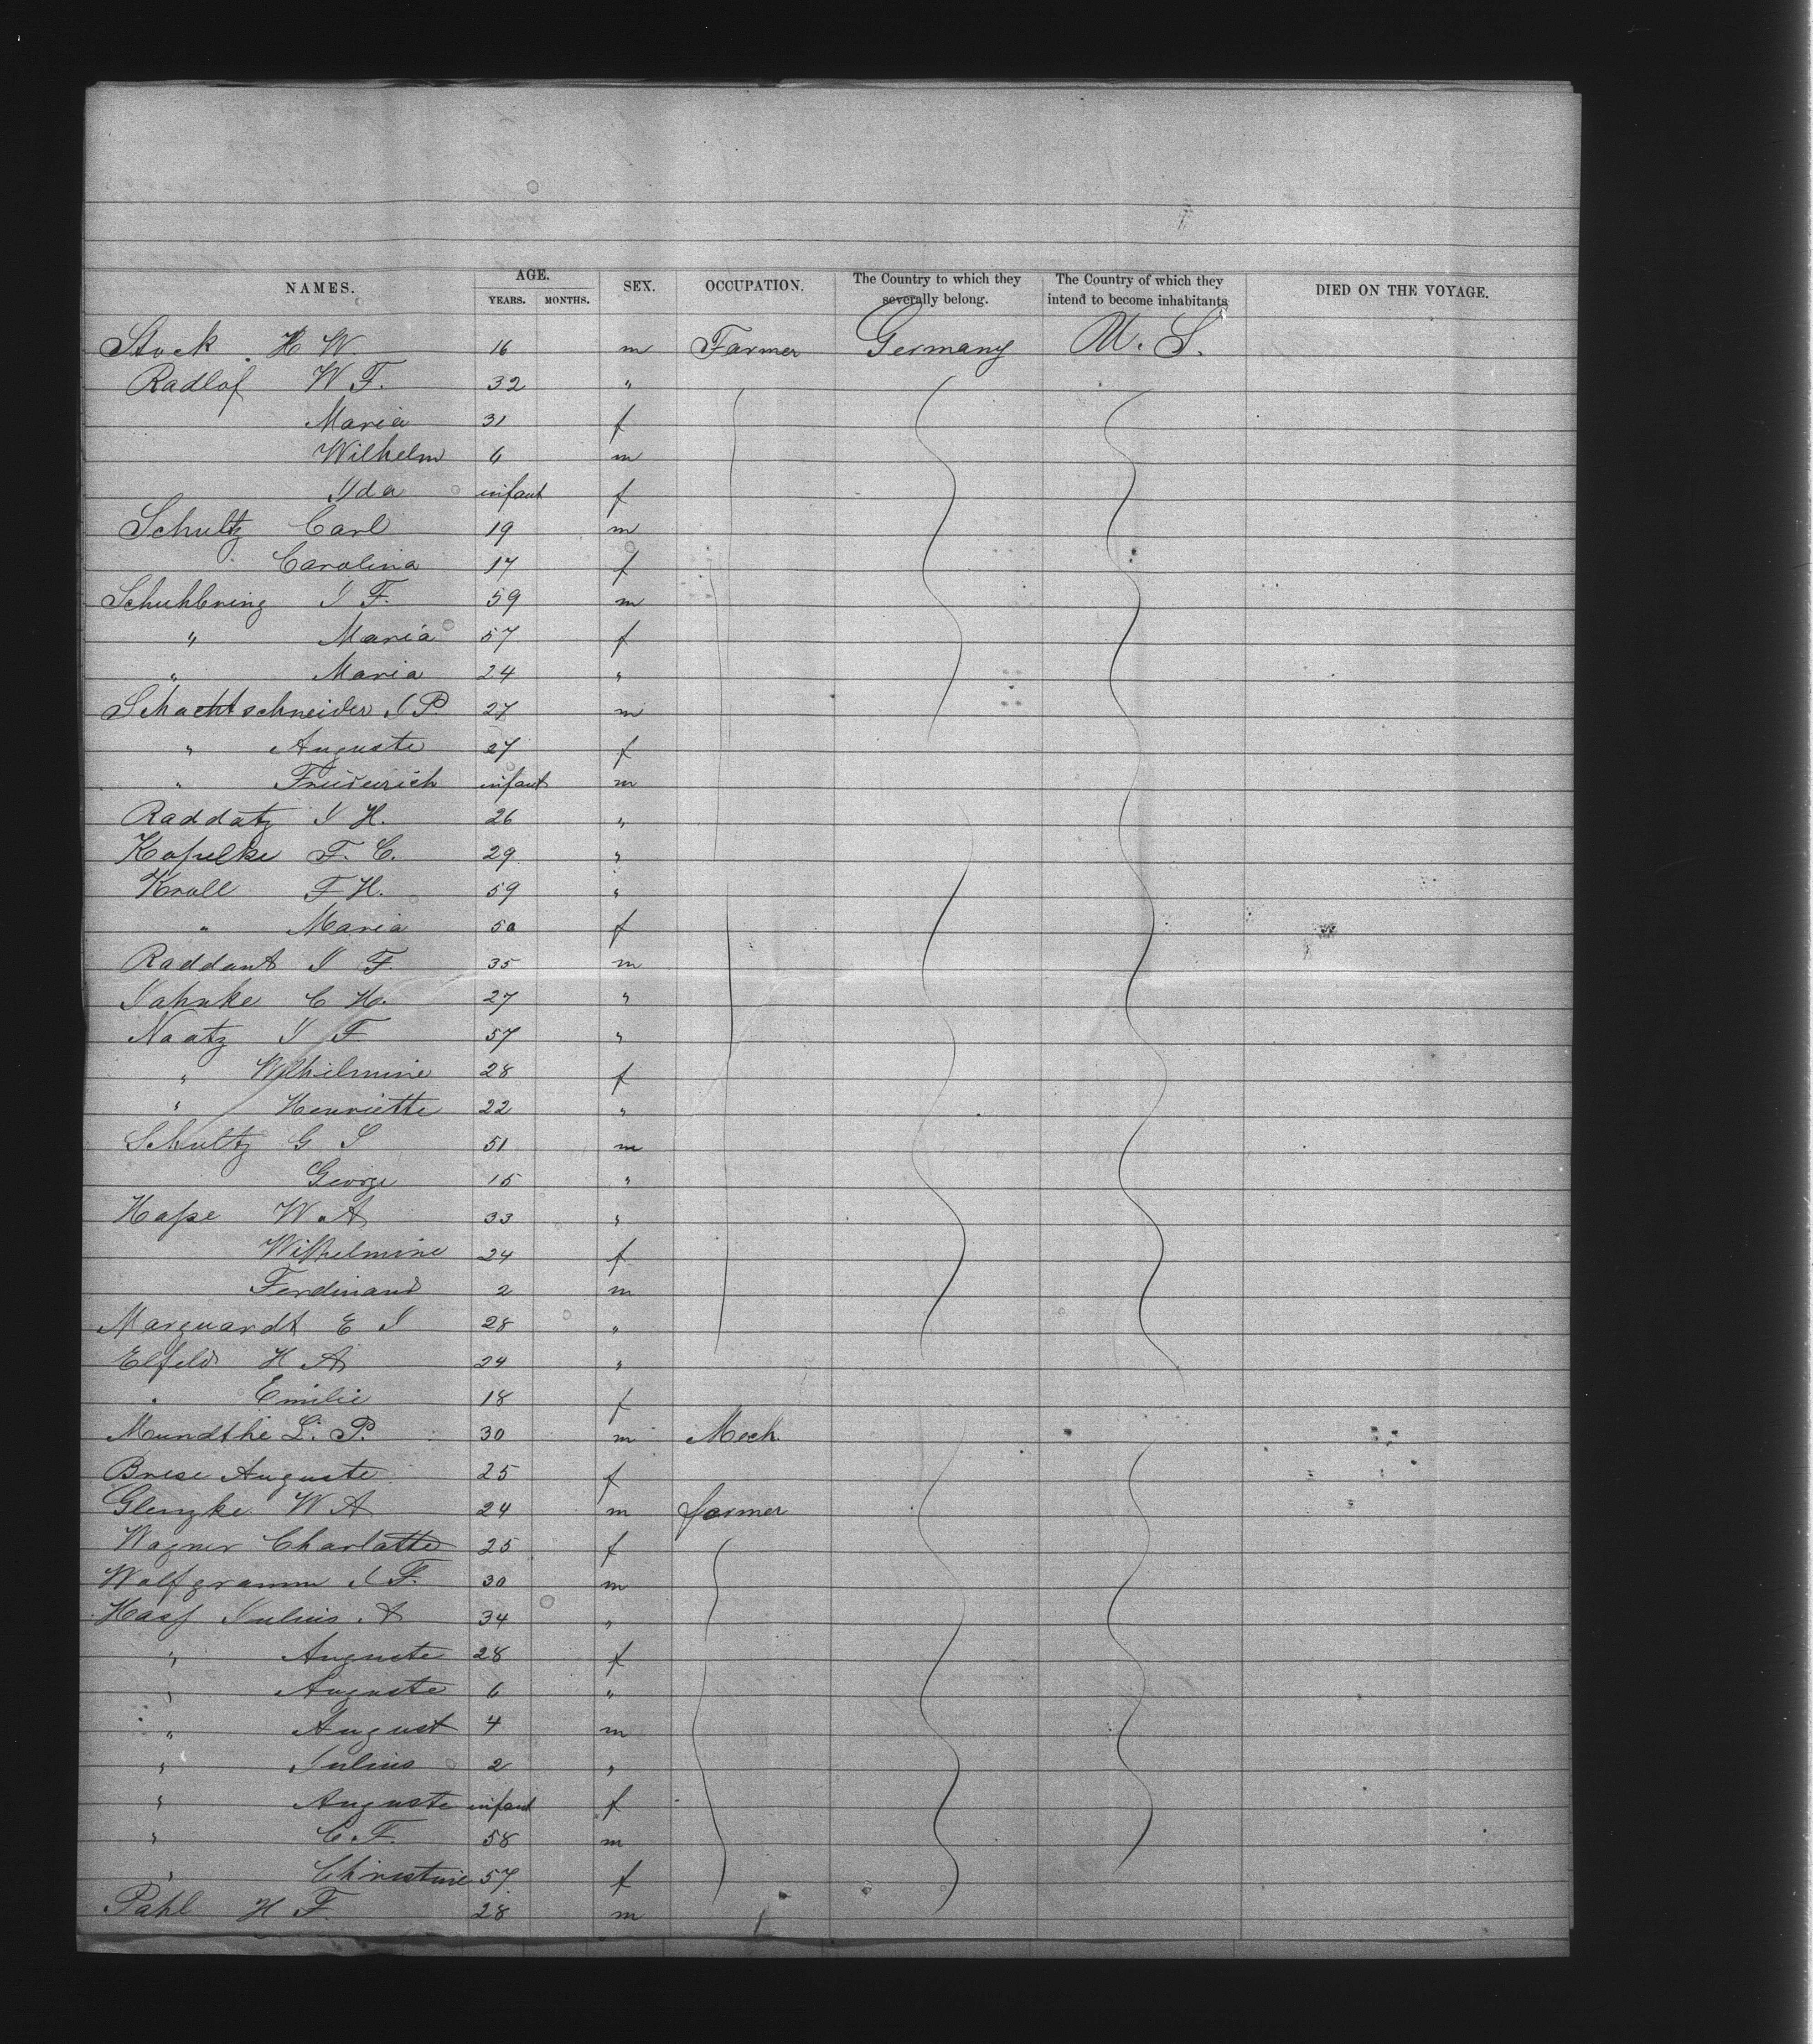 NAMES. AGE. YEARS. MONTHS. SEX. OCCUPATION. The Country to which they severally belong. The Country of which they intend to become inhabitants DIED ON THE VOYAGE.
Stock H W. 16 m Farmer Germany U. S.
Radlof W F. 32 "
Maria 31 f
Wilhelm 6 m
Ida infant f
Schultz Carl 19 m
Carolina 17 f
Schuhbring I F. 59 m
" Maria 57 f
" Maria 24 "
Schachtschneider I P. 27 m
" Auguste 27 f
" Friederich infant m
Raddatz I H. 26 "
Kapelke F. C. 29 "
Kroll F H. 59 "
" Maria 50 f
Raddant I F. 35 m
Jahnke C H. 27 "
Naatz I F 57 "
" Wilhelmine 28 f
" Henriette 22 "
Schultz G S 51 m
George 15 "
Hase W. A 33 "
Wilhelmine 24 f
Ferdinand 2 m
Marquardt E I 28 "
Elfeld H A 24 "
" Emilie 18 f
Mundthe L. P. 30 m Mech.
Brese Auguste 25 f
Glenzke W A 24 m farmer
Wagner Charlatte 25 f
Wolfgramm I F. 30 m
Hass Julius A 34 "
" Auguste 28 f
" Auguste 6 "
" August 4 m
" Julius 2 "
" Auguste infant f
" C. F. 58 m
" Christine 57 f
Pahl H F. 28 m